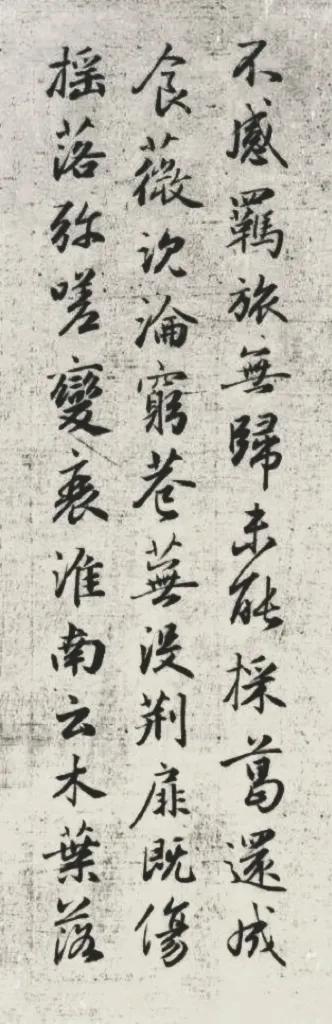 不感羈旅無歸未能採葛還成
食薇沉淪窮巷蕪没荆扉既傷
摇落弥嗟變衰淮南云木葉落